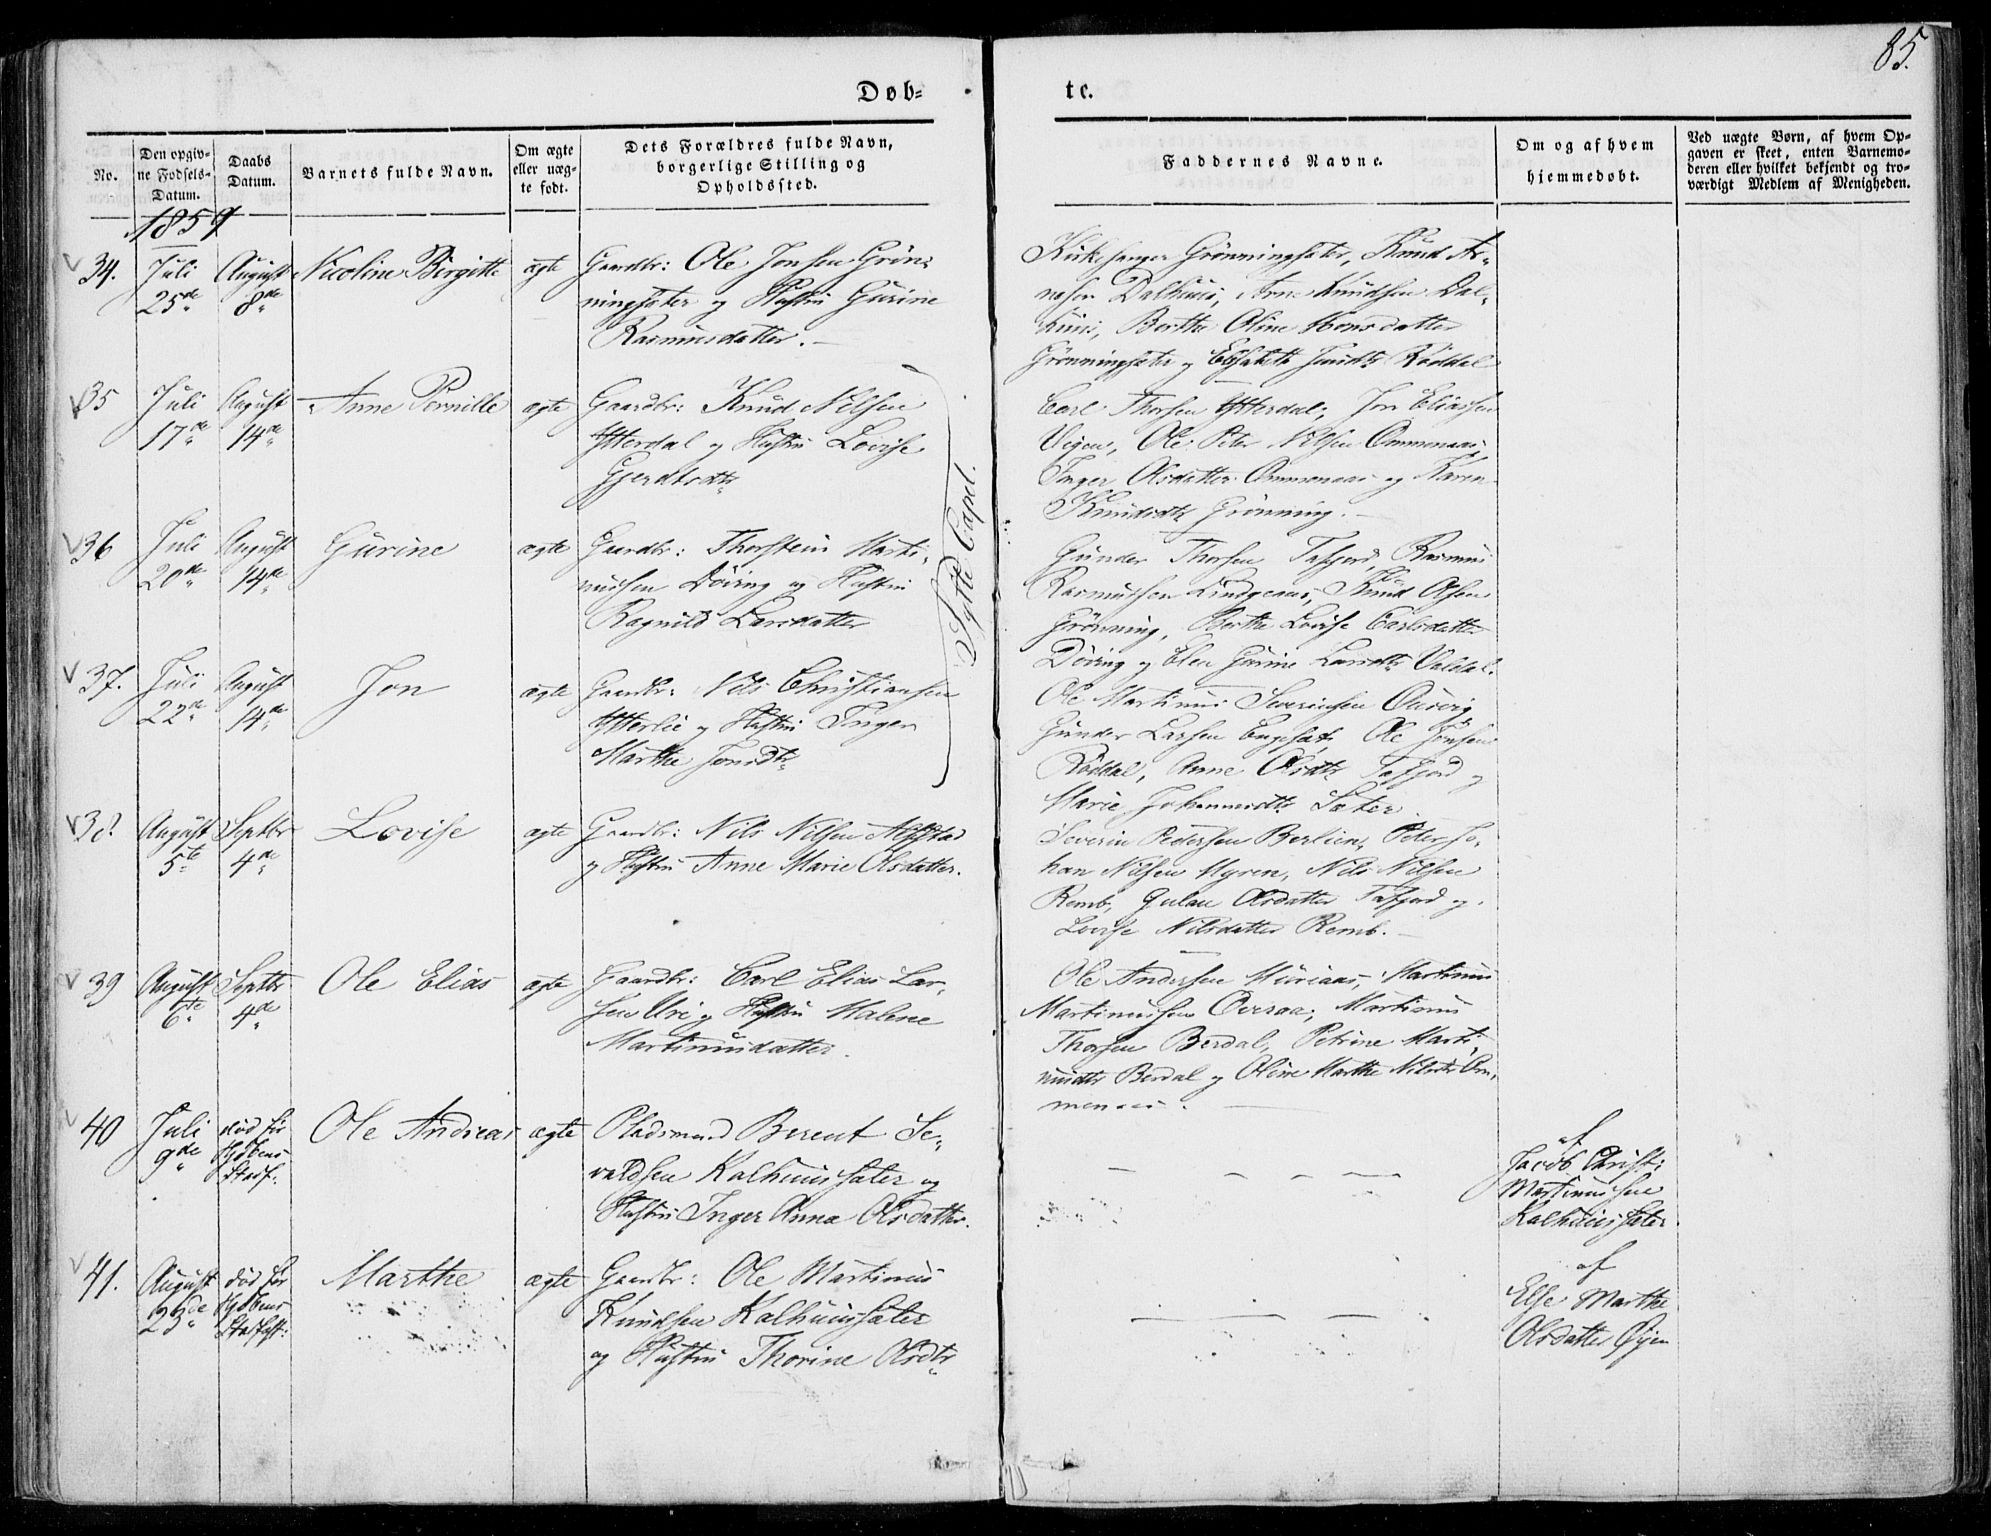 85.
Døb-
te.
No.
Den opgiv-
ne Fødsels-
Datum.
Daabs
Datum.
Barnets fulde Navn.
Om ægte
eller uæg-
te født.
Dets Forældres fulde Navn,
borgerlige Stilling og
Opholdssted.
Faddernes Navne.
Om og af hvem
hjemmedøbt.
Ved uægte Børn, af hvem Op-
gaven er skeet, enten Barnemo-
deren eller hvilket bekjendt og tro-
værdigt Medlem af Menigheden.
1859
34.
Juli
25de
August
8de
Nicoline Birgitte
ægte
Gaardbr: Ole Jonsen Grøn-
ningsæter og Hustru Gurine
Rasmusdatter.
Kirkesanger Grønningsæter, Knud Ar-
nesen Dalhuus, Arne Knudsen Dal-
huus, Berthe Oline Monsdatter
Grønningsæter og Elisabeth Røddal
35
Juli
17de
August
14de
Anne Pernille
ægte
Gaardbr: Knud Nilsen
Ytterdal og Hustru Lovise
Gjerdtsdtr
Carl Thorsen Ytterdal, Jon Eliassen
Ole Peter Nilsen Ommenaas,
Inger Olsdatter Ommenaas og Karen
Knudsdtr Grønning.
Sylte Capel.
36
Juli
20de
August
14de
Gurine
ægte
Gaardbr: Thorstein Marti-
nussen Døving og Hustru
Ragnild Larsdatter
Gunder Thorsen Tafjord, Rasmus
Rasmussen Knud Olsen
Grønning, Berthe Lovise Carlsdatter
Døving og Elen Gurine Larsdtr Valdal.
37.
Juli
22de
August
14de
Jon
ægte
Gaardbr: Nils Christiansen
Ytterlie og Hustru Inger
Marthe Jonsdtr
Ole Martinus Severinsen
Gunder Larsen Engeset, Ole Jonsen
Røddal, Anne Olsdtr Tafjord og
Marie Johannesdtr Sæter.
38.
August
5te
Septbr
4de
Lovise
ægte
Gaardbr: Nils Nilsen Alfstad
og Hustru Anne Marie Olsdatter.
Severin Pedersen Berlien, Peter Jo-
han Nilsen Myren, Nils Nilsen
Remb, Gulau Olsdatter Tafjord og
Lovise Nilsdatter Remb.
39
August
6te
Septbr
4de
Ole Elias
ægte
Gaardbr: Carl Elias Lar-
sen Uri og Hustru Malene
Martinusdatter.
Ole Andersen Muriaas, Martinus
Martinussen Overaa, Martinus
Thorsen Berdal, Petrine Marti-
nusdtr Berdal og Oline Marthe Nilsdtr Om-
menaas.
40
Juli
9de
død før
Kj.
Stadf.
Ole Andreas
ægte
Pladsmand Berent Se-
valdsen Kalhuussæter og
Hustru Inger Anna Olsdatter.
af
Jacob Christ:
Martinussen
Kalhuussæter
41.
August
25de
død før
Kj.
Stadfst:
Marthe
ægte
Gaardbr: Ole Martinus
Knudsen Kalhuussæter
og Hustru Thorine Olsdtr
af
Else Marthe
Olsdatter Øyen